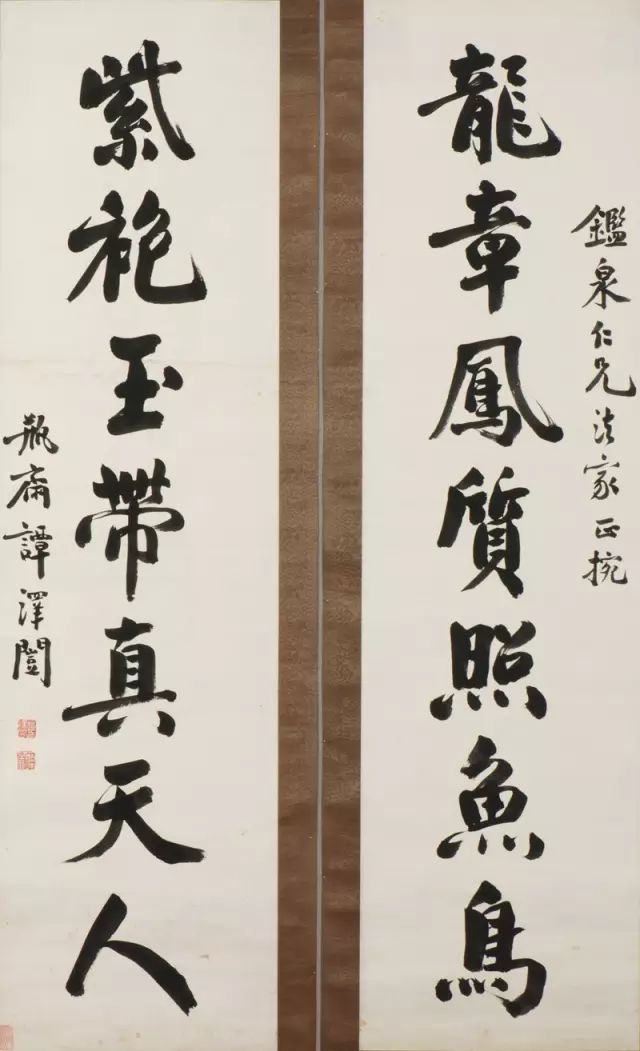 鑑泉仁兄法家正捥
龍章鳳質照魚鳥
紫袍玉帶真天人
瓶齋譚澤闓